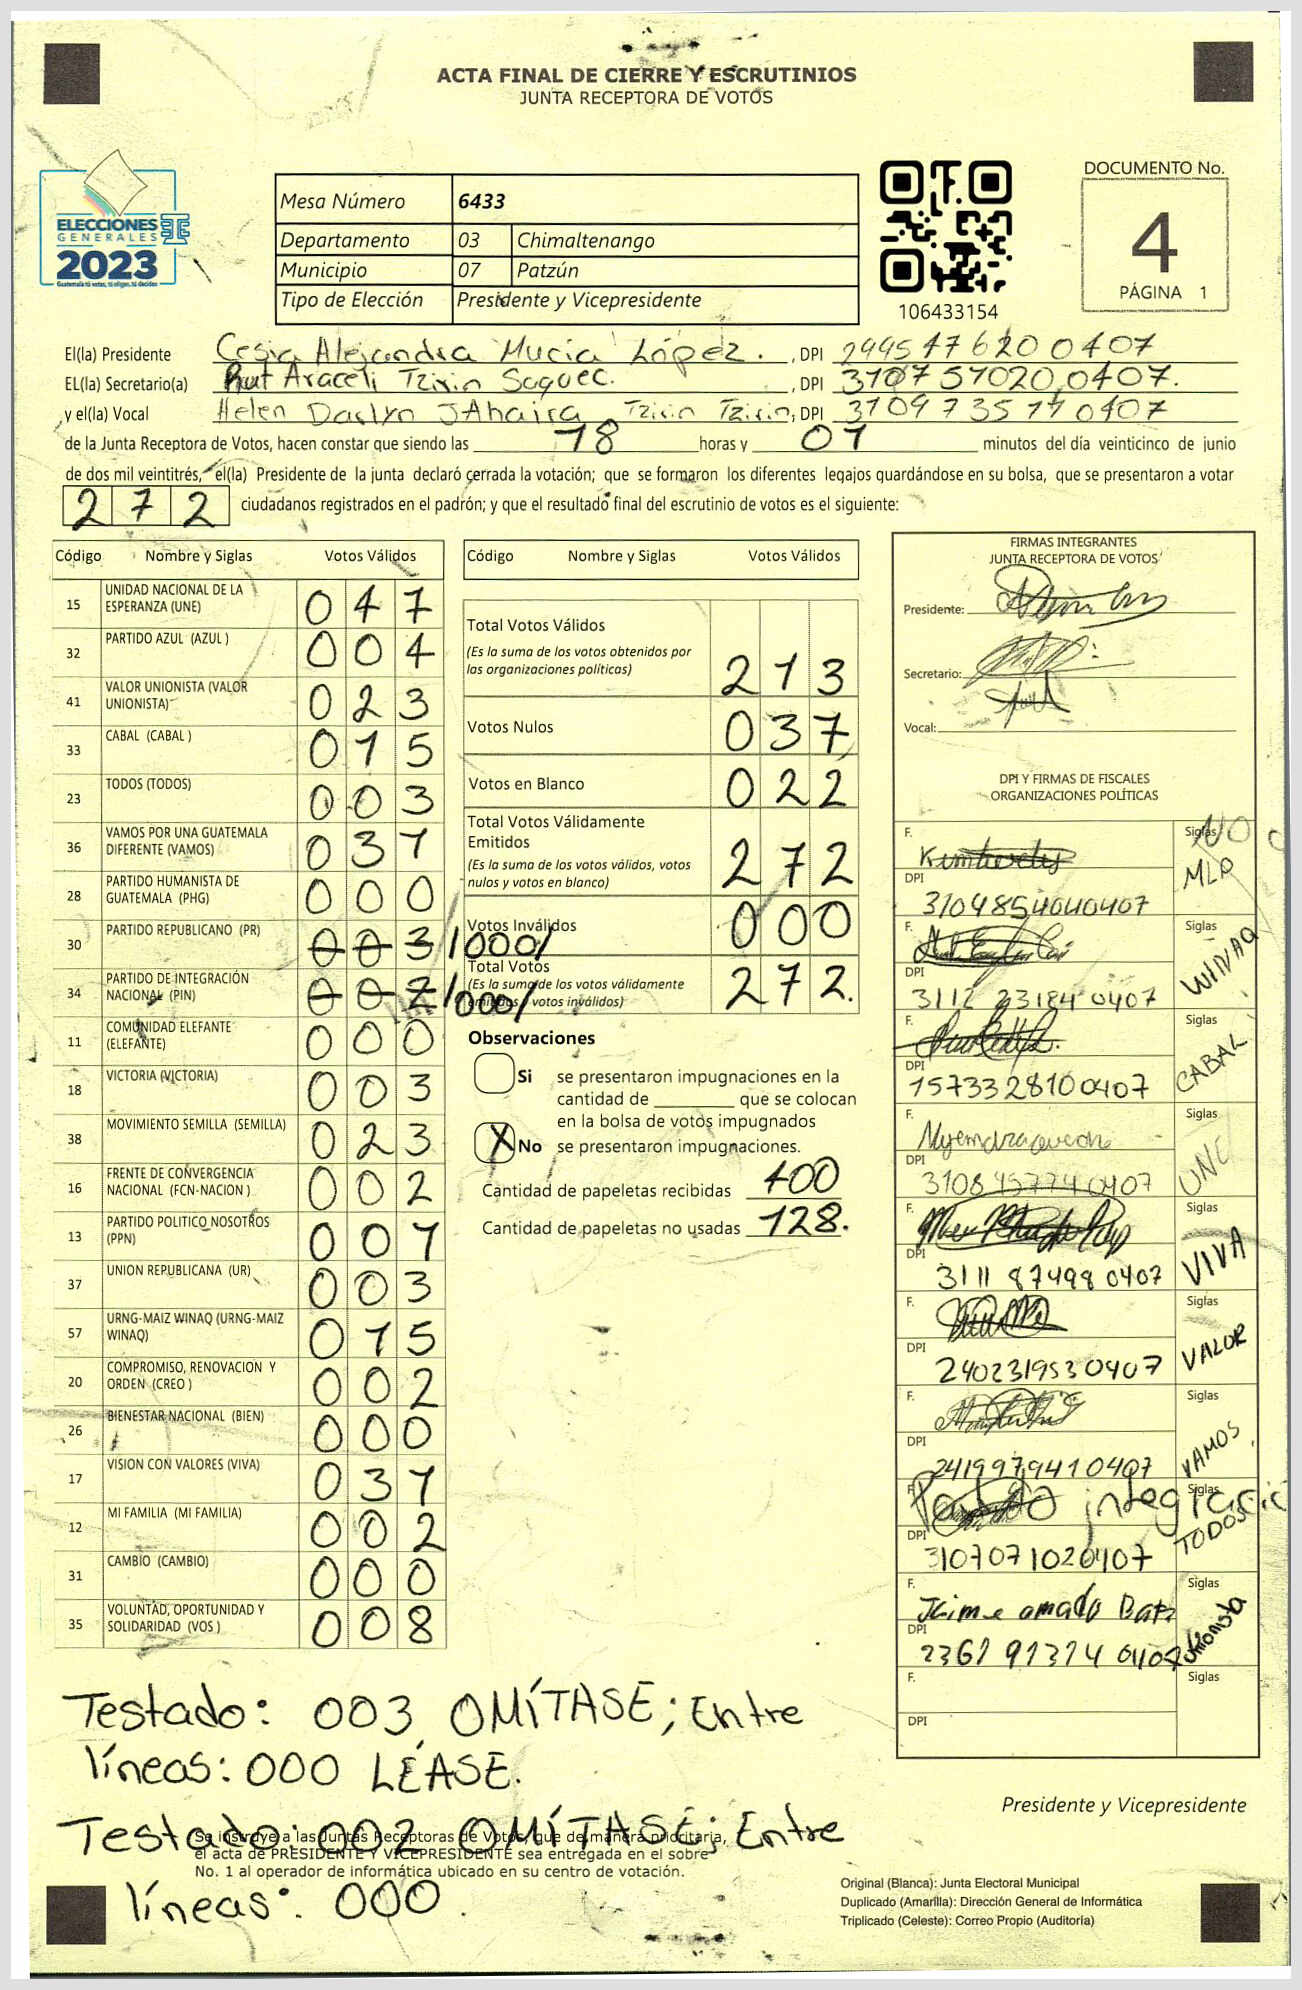 ACTA FINAL DE CIERRE Y ESCRUTINIOS
JUNTA RECEPTORA DE VOTOS
ELECCIONES
GENERALES
2023
Guatemala tú votas, tú eliges, tú decides
Mesa Número 6433
Departamento 03 Chimaltenango
Municipio 07 Patzún
Tipo de Elección Presidente y Vicepresidente
106433154
DOCUMENTO No.
4
PÁGINA 1
El(la) Presidente Cesia Alejandra Mucia López. , DPI 2445476200407
EL(la) Secretario(a) Rut Araceli Tzirin Soquec. , DPI 3107570200407.
y el(la) Vocal Helen Darlyn JAhaira Tzirin Tzirin, DPI 3109735770407
de la Junta Receptora de Votos, hacen constar que siendo las 18 horas y 01 minutos del día veinticinco de junio
de dos mil veintitrés, el(la) Presidente de la junta declaró cerrada la votación; que se formaron los diferentes legajos guardándose en su bolsa, que se presentaron a votar
272 ciudadanos registrados en el padrón; y que el resultado final del escrutinio de votos es el siguiente:
Código Nombre y Siglas Votos Válidos
15 UNIDAD NACIONAL DE LA ESPERANZA (UNE) 047
32 PARTIDO AZUL (AZUL ) 004
41 VALOR UNIONISTA (VALOR UNIONISTA) 023
33 CABAL (CABAL ) 015
23 TODOS (TODOS) 003
36 VAMOS POR UNA GUATEMALA DIFERENTE (VAMOS) 031
28 PARTIDO HUMANISTA DE GUATEMALA (PHG) 000
30 PARTIDO REPUBLICANO (PR) 003 /000/
34 PARTIDO DE INTEGRACIÓN NACIONAL (PIN) 002 /000/
11 COMUNIDAD ELEFANTE (ELEFANTE) 000
18 VICTORIA (VICTORIA) 003
38 MOVIMIENTO SEMILLA (SEMILLA) 023
16 FRENTE DE CONVERGENCIA NACIONAL (FCN-NACION ) 002
13 PARTIDO POLITICO NOSOTROS (PPN) 001
37 UNION REPUBLICANA (UR) 003
57 URNG-MAIZ WINAQ (URNG-MAIZ WINAQ) 015
20 COMPROMISO, RENOVACION Y ORDEN (CREO ) 002
26 BIENESTAR NACIONAL (BIEN) 000
17 VISION CON VALORES (VIVA) 031
12 MI FAMILIA (MI FAMILIA) 002
31 CAMBIO (CAMBIO) 000
35 VOLUNTAD, OPORTUNIDAD Y SOLIDARIDAD (VOS ) 008
Código Nombre y Siglas Votos Válidos
Total Votos Válidos
(Es la suma de los votos obtenidos por
las organizaciones políticas) 213
Votos Nulos 037
Votos en Blanco 022
Total Votos Válidamente
Emitidos
(Es la suma de los votos válidos, votos
nulos y votos en blanco) 272
Votos Inválidos 000
Total Votos
(Es la suma de los votos válidamente
emitidos y votos inválidos) 272.
Observaciones
Si se presentaron impugnaciones en la
cantidad de ________ que se colocan
en la bolsa de votos impugnados
X No se presentaron impugnaciones.
Cantidad de papeletas recibidas 400
Cantidad de papeletas no usadas 128.
FIRMAS INTEGRANTES
JUNTA RECEPTORA DE VOTOS
Presidente:
Secretario:
Vocal:
DPI Y FIRMAS DE FISCALES
ORGANIZACIONES POLÍTICAS
F. Siglas
MLP
DPI 3104854040407
F. Siglas WINAQ
DPI 3112 23184 0407
F. Siglas CABAL
DPI 1573328100407
F. Siglas UNE
DPI 3108457740407
F. Siglas VIVA
DPI 3111 87498 0407
F. Siglas VALOR
DPI 2402319530407
F. Siglas VAMOS
DPI 2419979410407
F. Siglas TODOS
DPI 3107071020407
F. Jaime amado Siglas Unionista
DPI 2361 91314 0407
F. Siglas
DPI
Testado: 003 OMÍTASE; Entre
líneas: 000 LÉASE.
Testado: 002 OMÍTASE; Entre
líneas: 000.
Se instruye a las Juntas Receptoras de Votos, que de manera prioritaria,
el acta de PRESIDENTE Y VICEPRESIDENTE sea entregada en el sobre
No. 1 al operador de informática ubicado en su centro de votación.
Presidente y Vicepresidente
Original (Blanca): Junta Electoral Municipal
Duplicado (Amarilla): Dirección General de Informática
Triplicado (Celeste): Correo Propio (Auditoría)